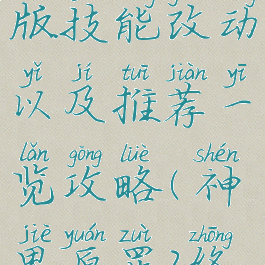 版技能改动
yǐ jí tuī jiàn yī
以及推荐一
lǎn gōng lüè shén
览攻略(神
jiè yuán zuì zhōng
界原罪2终